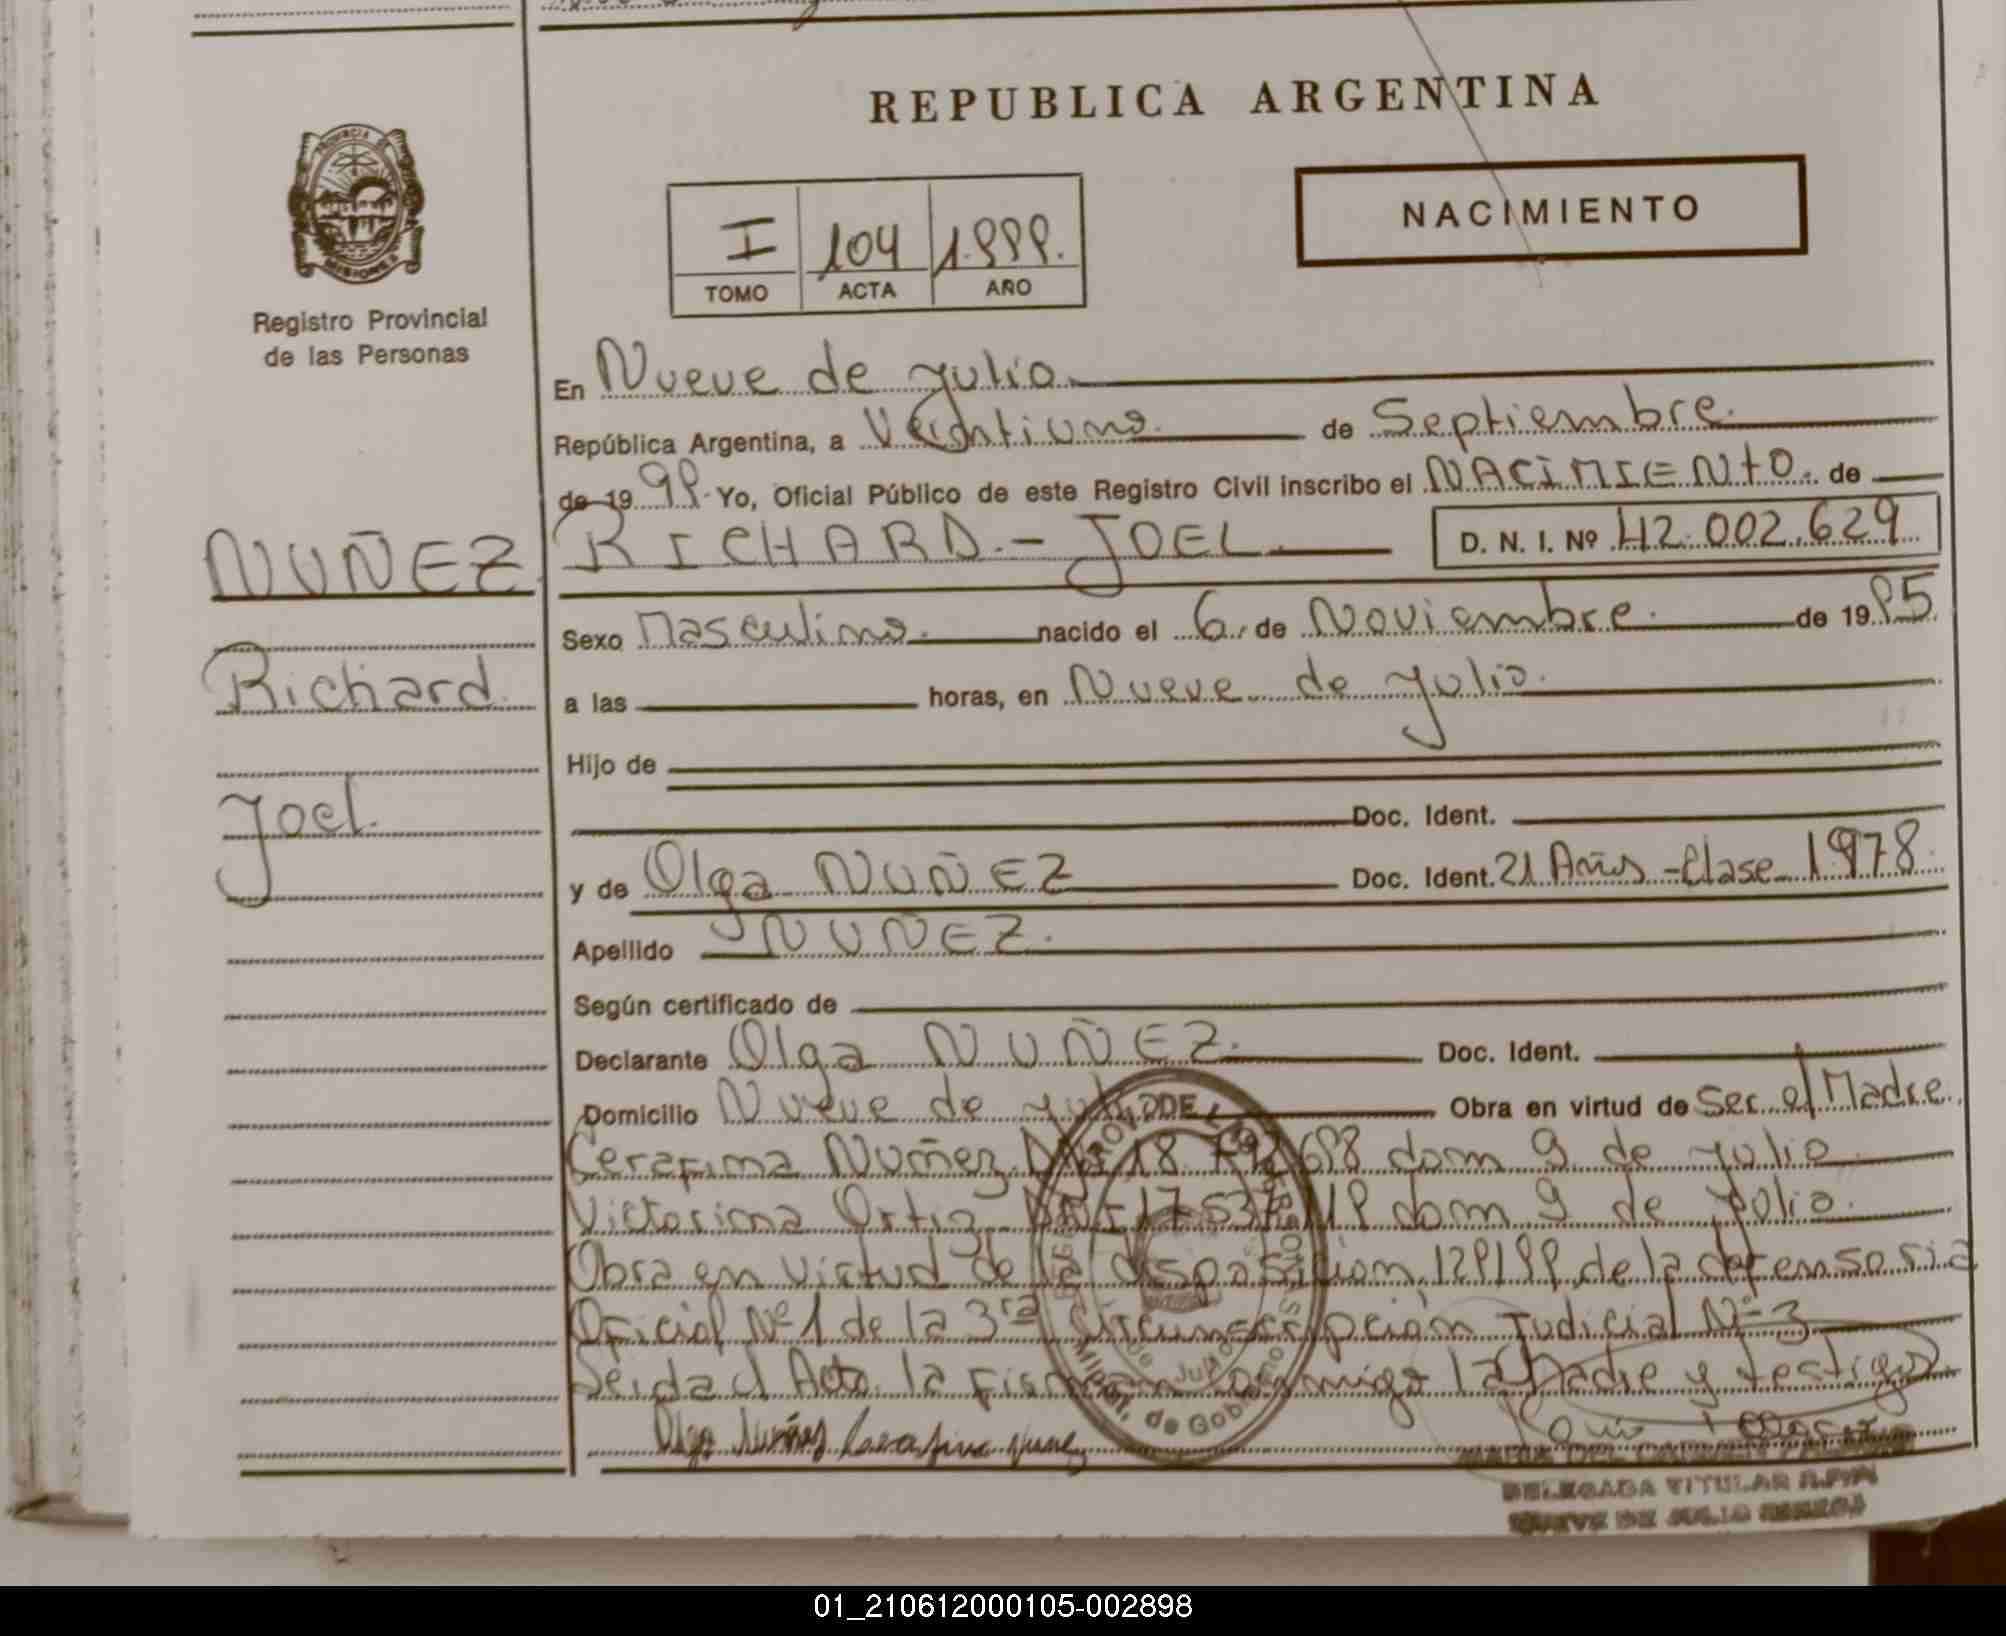 REPUBLICA ARGENTINA
NACIMIENTO
PROVINCIA DE MISIONES
Registro Provincial
de las Personas
I 104 1.999.
TOMO ACTA AÑO
En Nueve de Julio.
República Argentina, a Veintiuno. de Septiembre.
de 19 99. Yo, Oficial Público de este Registro Civil inscribo el NACIMIENTO. de
NUÑEZ RICHARD.- JOEL D. N. I. Nº 42.002.629
Sexo Masculino. nacido el 6. de Noviembre. de 19 95.
Richard
a las horas, en Nueve de Julio.
Hijo de
Joel.
Doc. Ident.
y de Olga NUÑEZ Doc. Ident. 21 Años - Clase 1978.
Apellido NUÑEZ.
Según certificado de
Declarante Olga NUÑEZ. Doc. Ident.
Domicilio Nueve de Obra en virtud de Ser el Madre.
Cerafina Nuñez 18 dom 9 de Julio
Victorina Ortiz dom 9 de Julio.
Obra en virtud de la disposicion 129/99 de la defensoria
Oficial Nº 1 de la 3ra Circunscripción Judicial Nº 3
Leida el Acta la firman conmigo la Madre y testigos.
Olga Nuñez Cerafina Nuñez
DELEGADA TITULAR R.P.P.
NUEVE DE JULIO
01_210612000105-002898